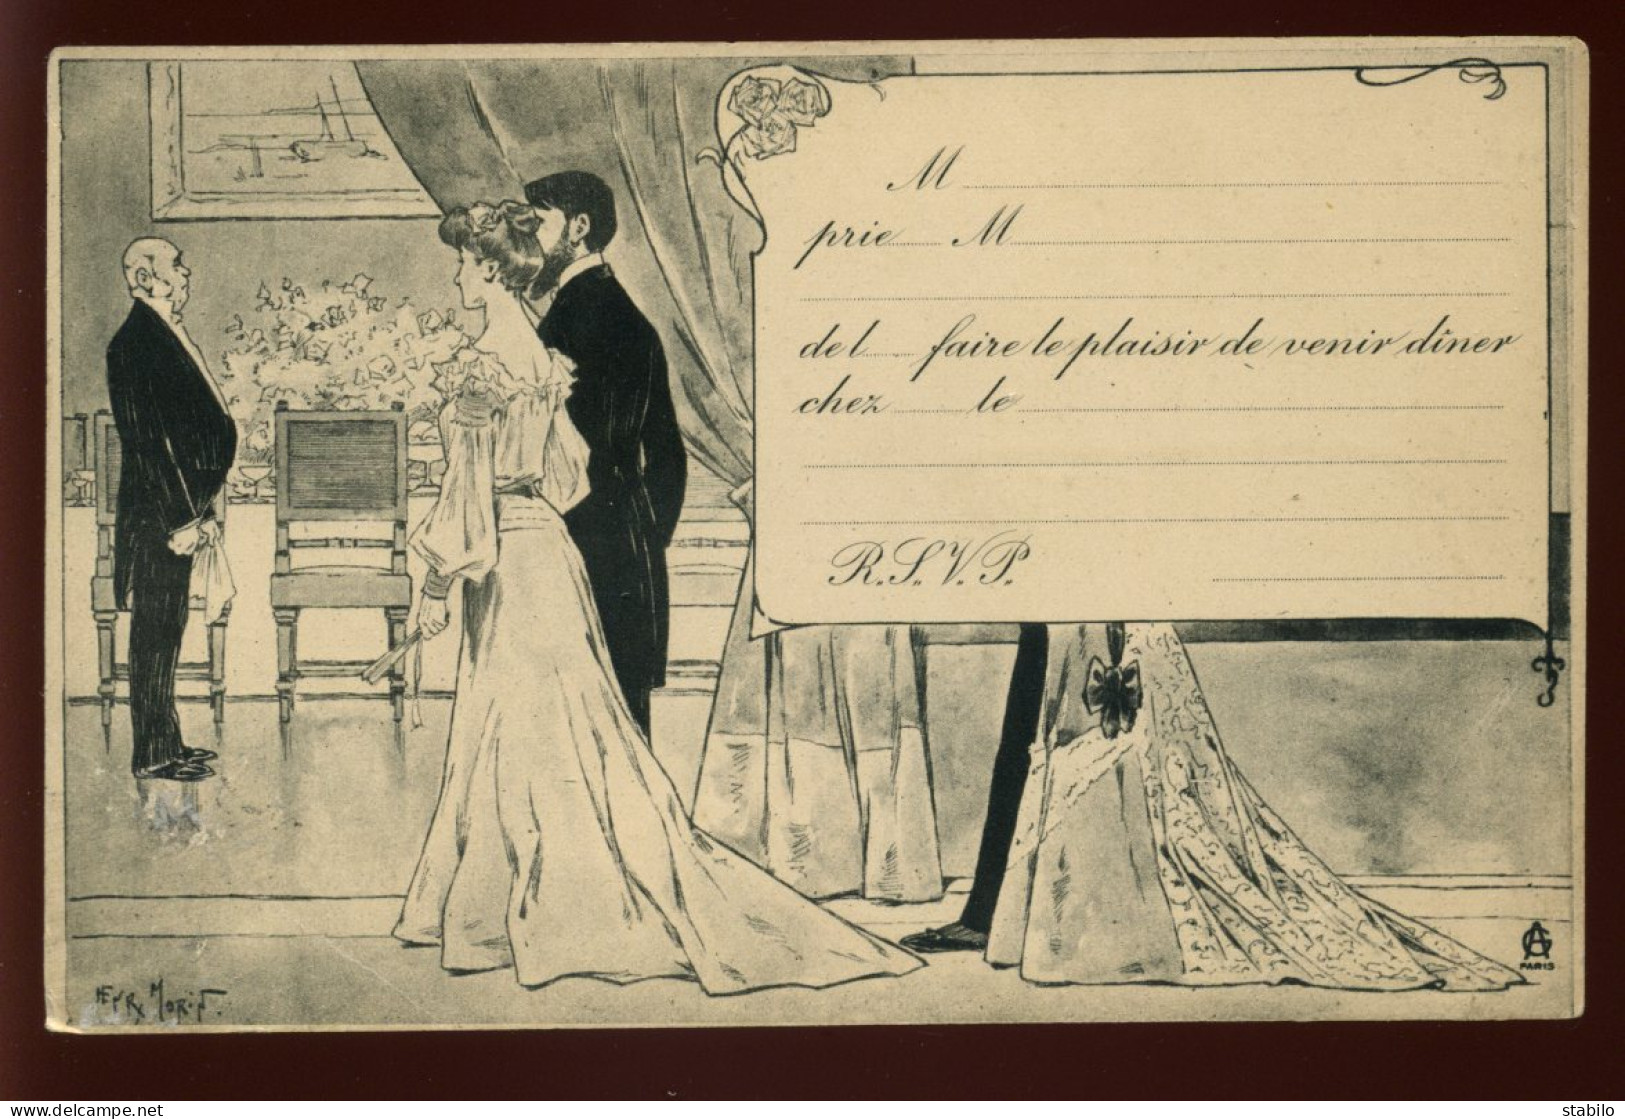 M
prie M
de l faire le plaisir de venir dîner
chez le
R.S.V.P.
HENRY MORIN.
AG
PARIS
stabilo